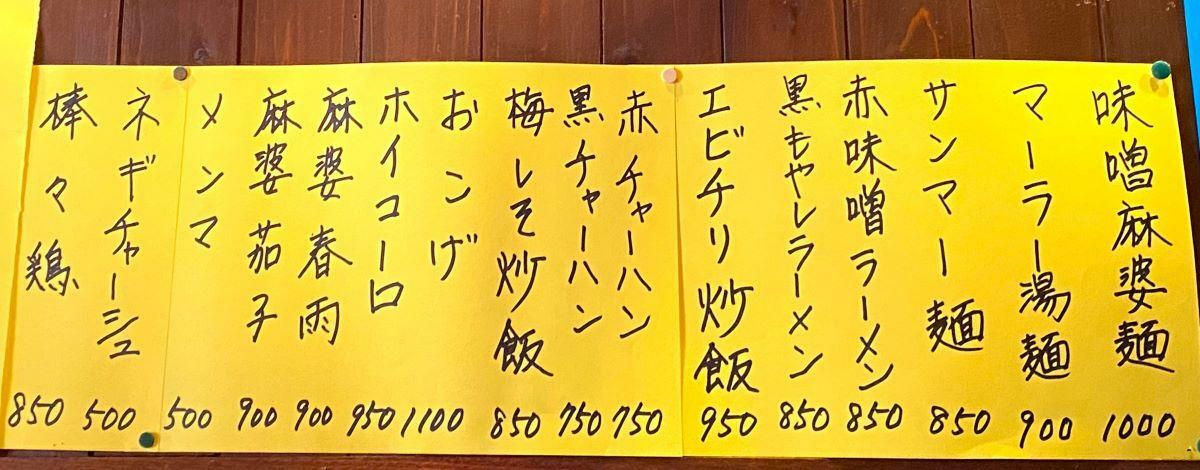 味噌麻婆麺 1000
マーラー湯麺 900
サンマー麺 850
赤味噌ラーメン 850
黒もやしラーメン 850
エビチリ炒飯 950
赤チャーハン 750
黒チャーハン 750
梅しそ炒飯 850
おこげ 1100
ホイコーロ 950
麻婆春雨 900
麻婆茄子 900
メンマ 500
ネギチャーシュ 500
棒々鶏 850